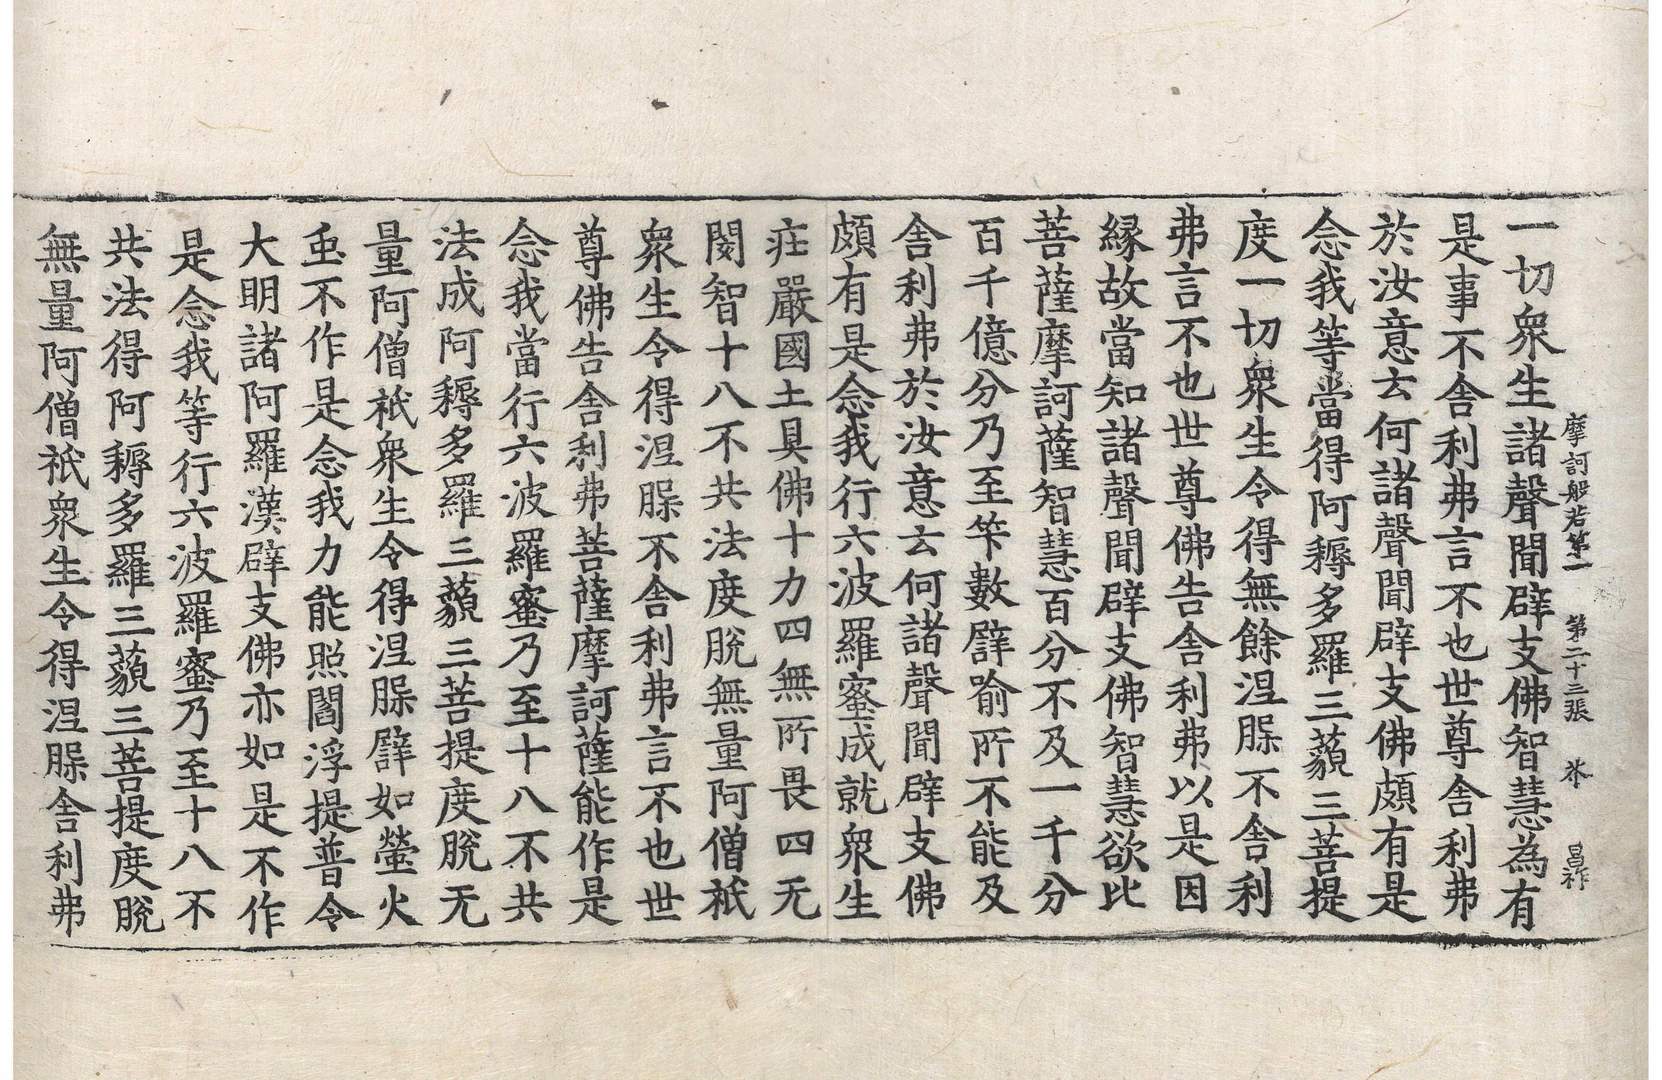 摩訶般若第一 第二十三張 芥 昌祚
一切衆生諸聲聞辟支佛智慧為有
是事不舍利弗言不也世尊舍利弗
於汝意云何諸聲聞辟支佛頗有是
念我等當得阿耨多羅三藐三菩提
度一切衆生令得無餘涅槃不舍利
弗言不也世尊佛告舍利弗以是因
縁故當知諸聲聞辟支佛智慧欲比
菩薩摩訶薩智慧百分不及一千分
百千億分乃至笇數譬喻所不能及
舍利弗於汝意云何諸聲聞辟支佛
頗有是念我行六波羅蜜成就衆生
莊嚴國土具佛十力四無所畏四无
閡智十八不共法度脫無量阿僧祇
衆生令得涅槃不舍利弗言不也世
尊佛告舍利弗菩薩摩訶薩能作是
念我當行六波羅蜜乃至十八不共
法成阿耨多羅三藐三菩提度脫无
量阿僧祇衆生令得涅槃譬如螢火
虫不作是念我力能照閻浮提普令
大明諸阿羅漢辟支佛亦如是不作
是念我等行六波羅蜜乃至十八不
共法得阿耨多羅三藐三菩提度脫
無量阿僧祇衆生令得涅槃舍利弗